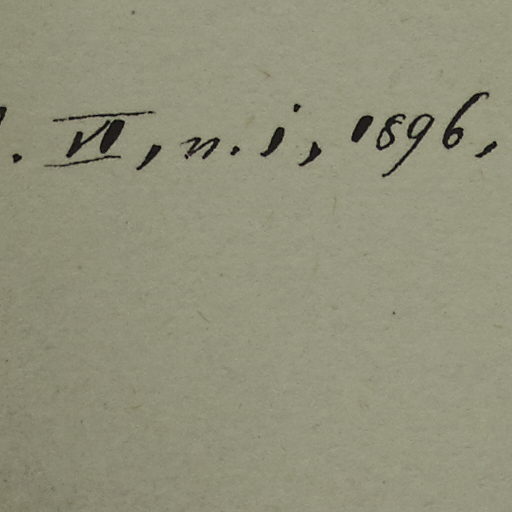 . VI, n. i, 1896,